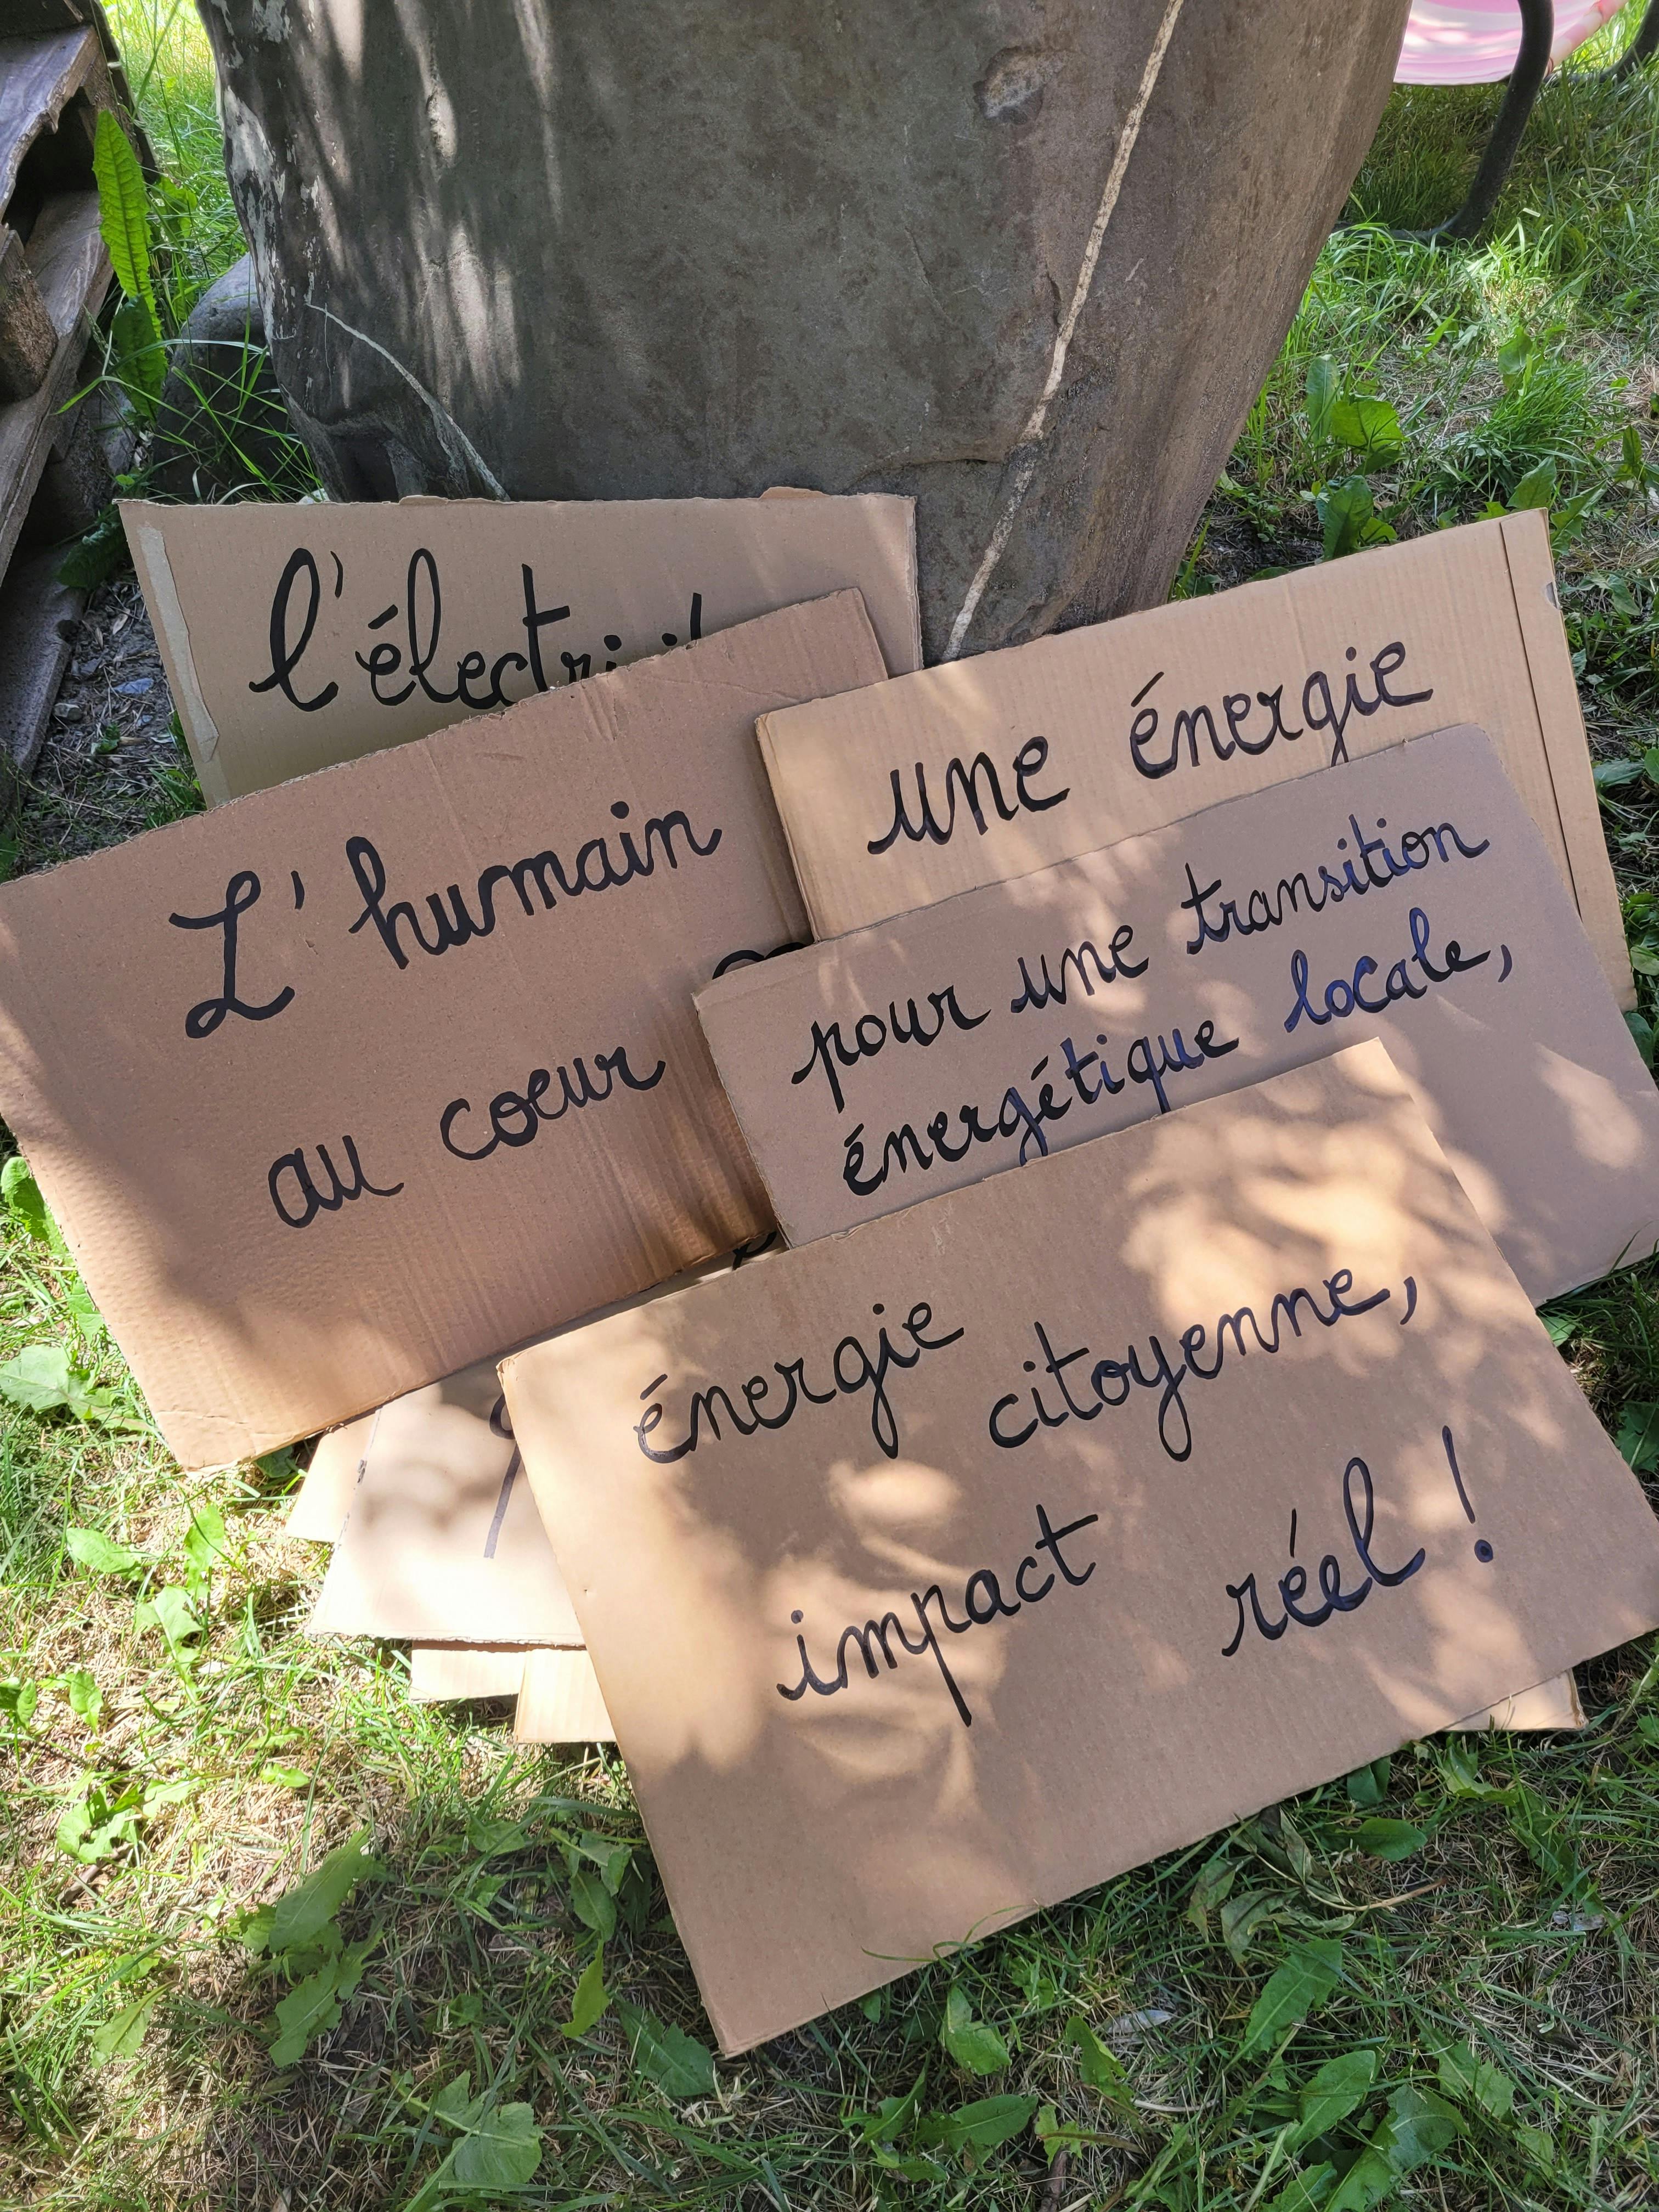 L'humain
au coeur
une énergie
pour une transition
énergétique locale,
énergie citoyenne,
impact réel !